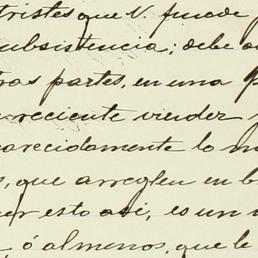 tristes que V. puede
subsistencia; debe
tras partes, en una
reciente viender
parecidamente lo
, que arreglen en b
er esto asi, es un
, ó al menos, que le